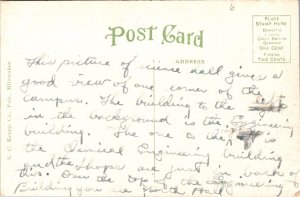 6
Post Card
ADDRESS
PLACE
STAMP HERE
DOMESTIC
ONE CENT
FOREIGN
TWO CENTS
E. C. Kropp Co., Pub., Milwaukee.
This picture of science hall gives a
good view of one corner of the
campus. The building to the
in the background is the Engineering
building. The one to the is
the Chemical Engineering building
and the Shops are just in back of
this. Over the top of the Engineering
Building you see North Hall